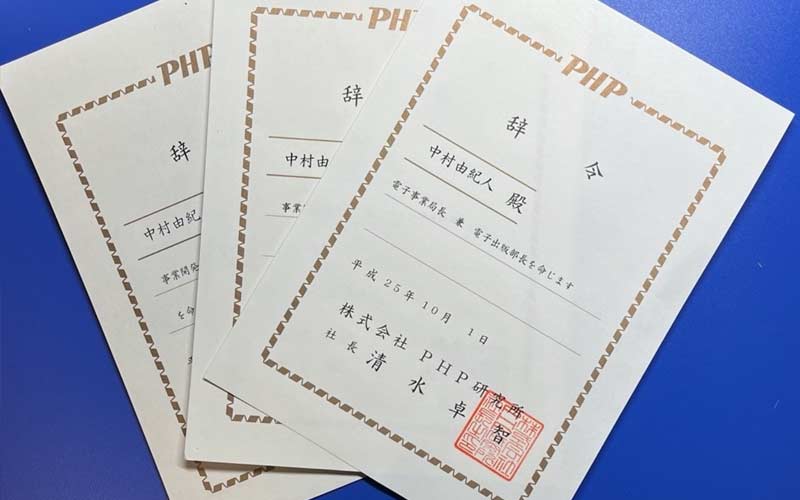 PHP
辞
中村由紀
事業開発
を命
PHP
辞
中村由
事業
PHP
辞 令
中村由紀人 殿
電子事業局長 兼 電子出版部長を命じます
平成25年10月 1日
株式会社 PHP研究所
社長 清水卓智